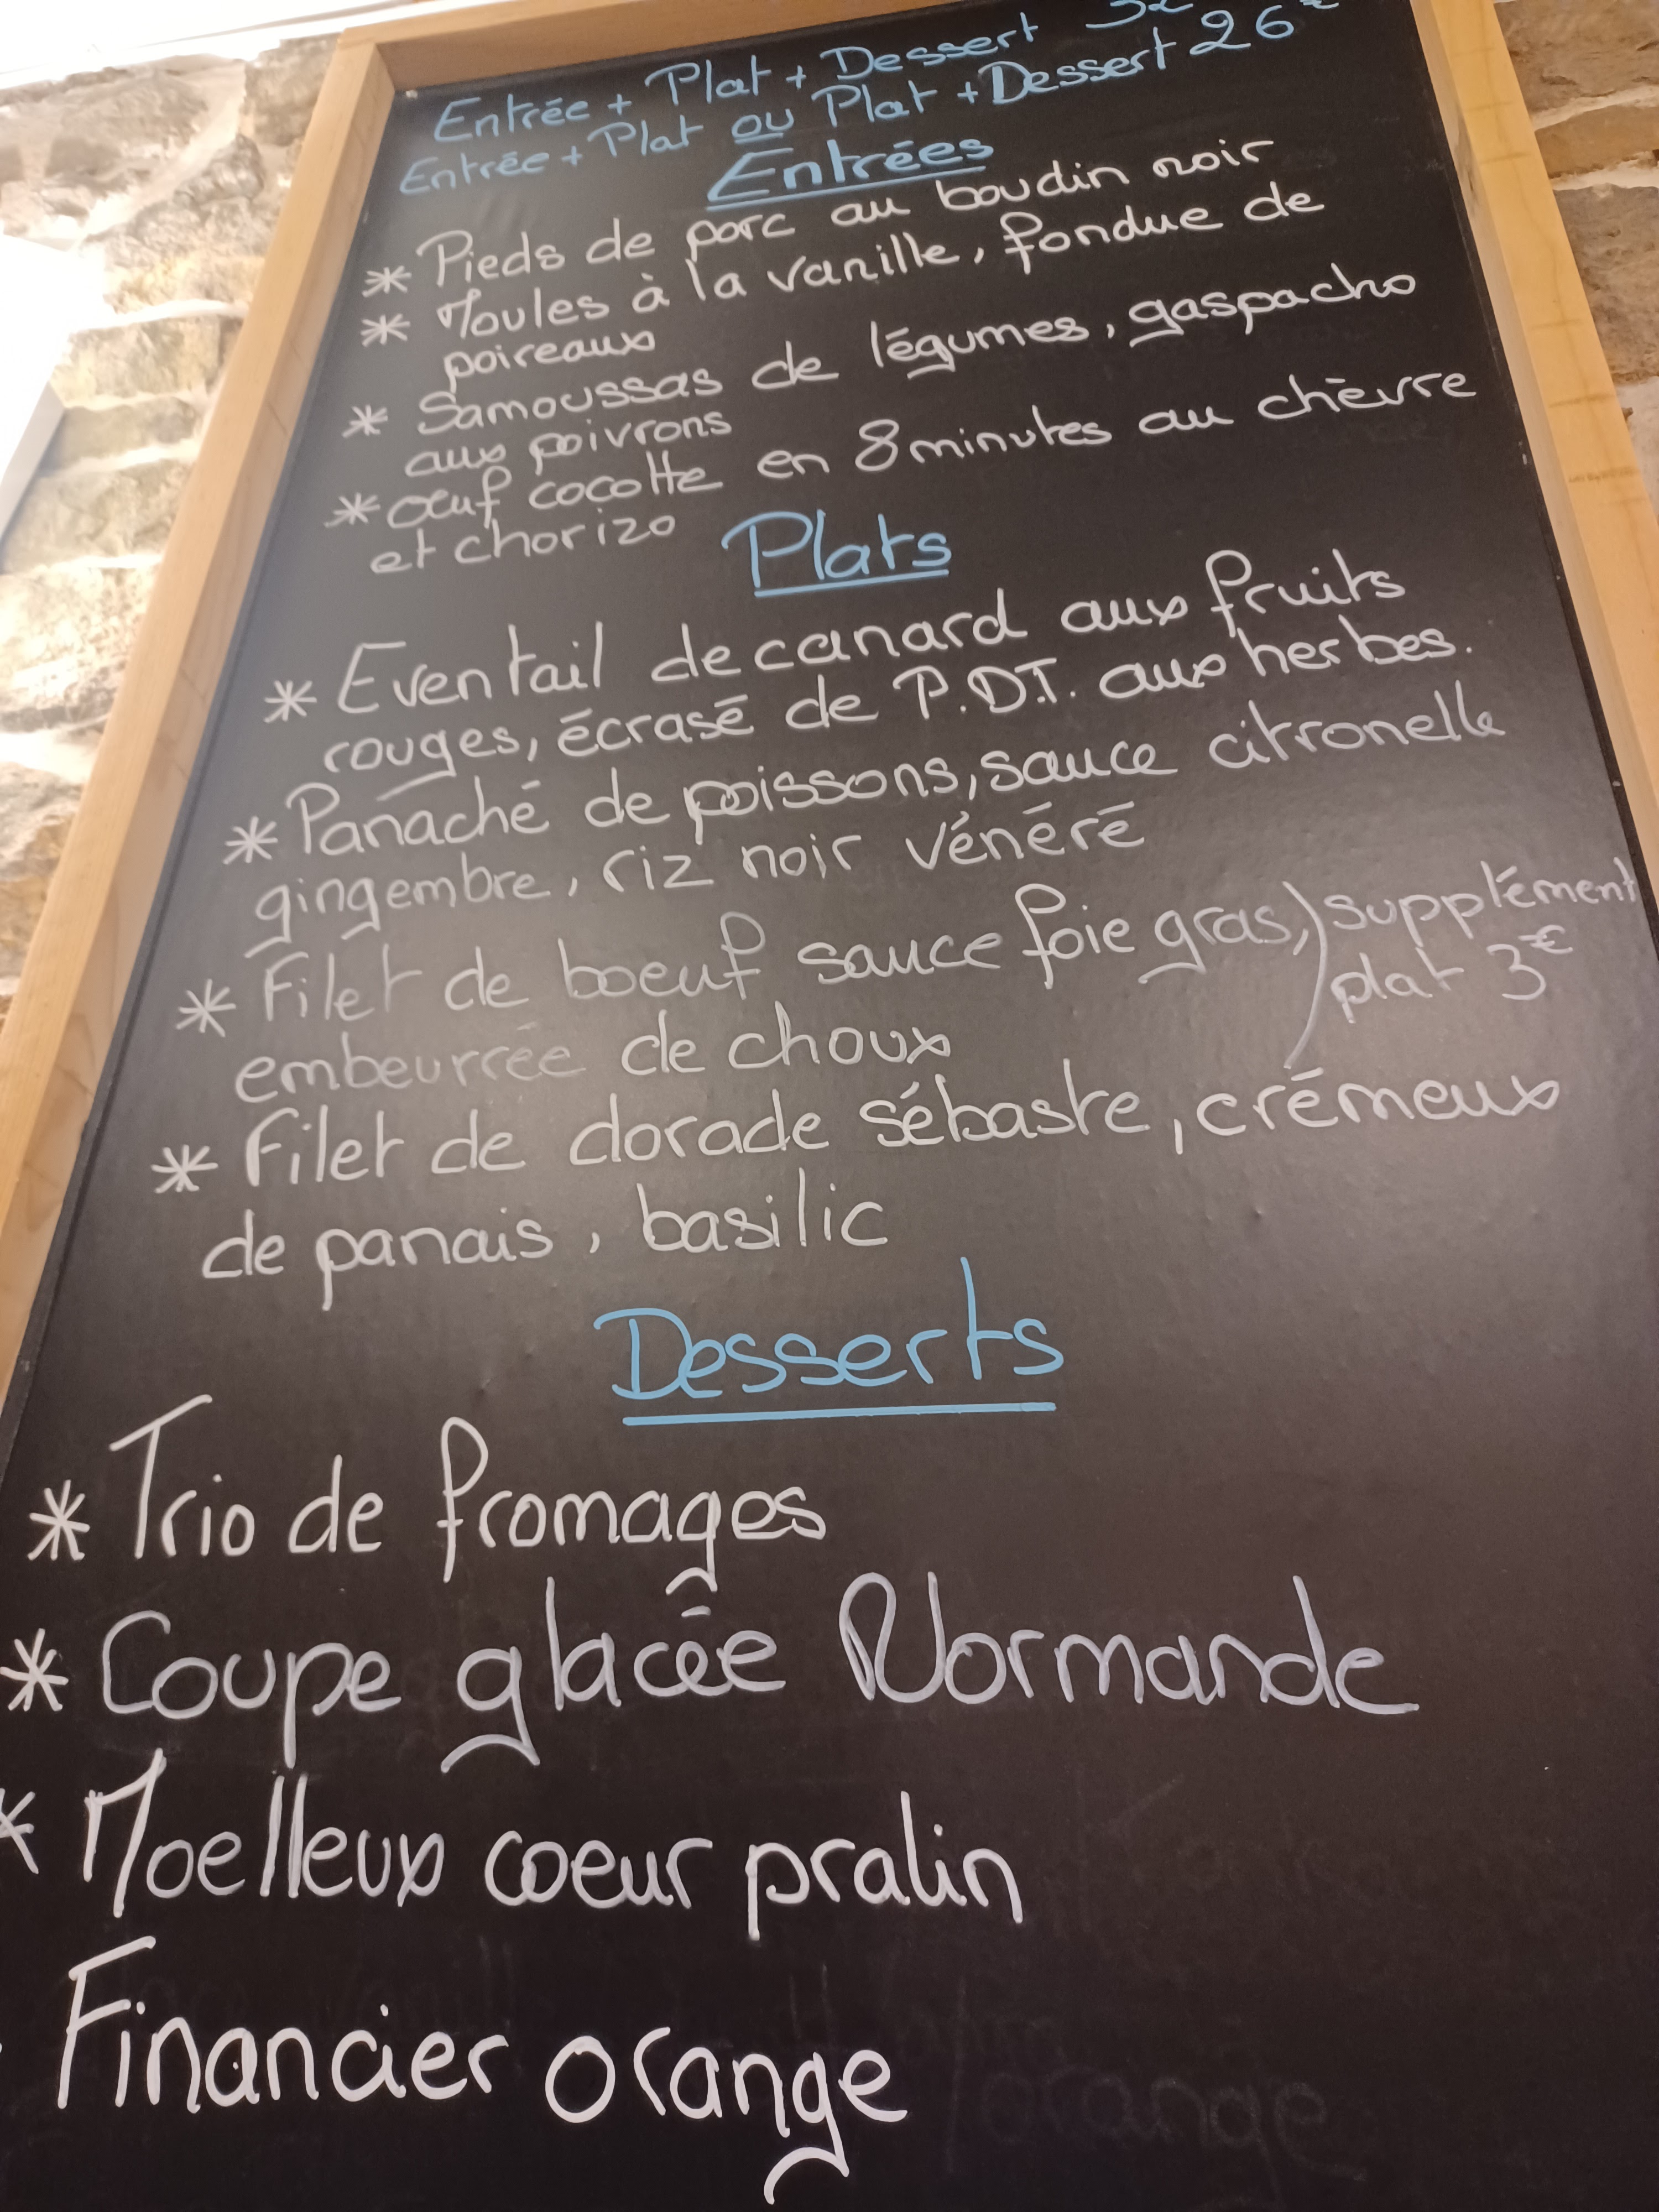 Entrée + Plat + Dessert
Entrée + Plat ou Plat + Dessert 26€
Entrées
* Pieds de porc au boudin noir
* Moules à la vanille, fondue de
poireaux
* Samoussas de légumes, gaspacho
aux poivrons
* oeuf cocotte en 8 minutes au chèvre
et chorizo
Plats
* Eventail de canard aux fruits
rouges, écrasé de P.D.T. aux herbes.
* Panaché de poissons, sauce citronelle
gingembre, riz noir vénéré
* Filet de boeuf sauce foie gras, ) supplément
embeurrée de choux ) plat 3€
* Filet de dorade sébaste, crémeux
de panais, basilic
Desserts
* Trio de fromages
* Coupe glacée Normande
* Moelleux coeur pralin
Financier orange